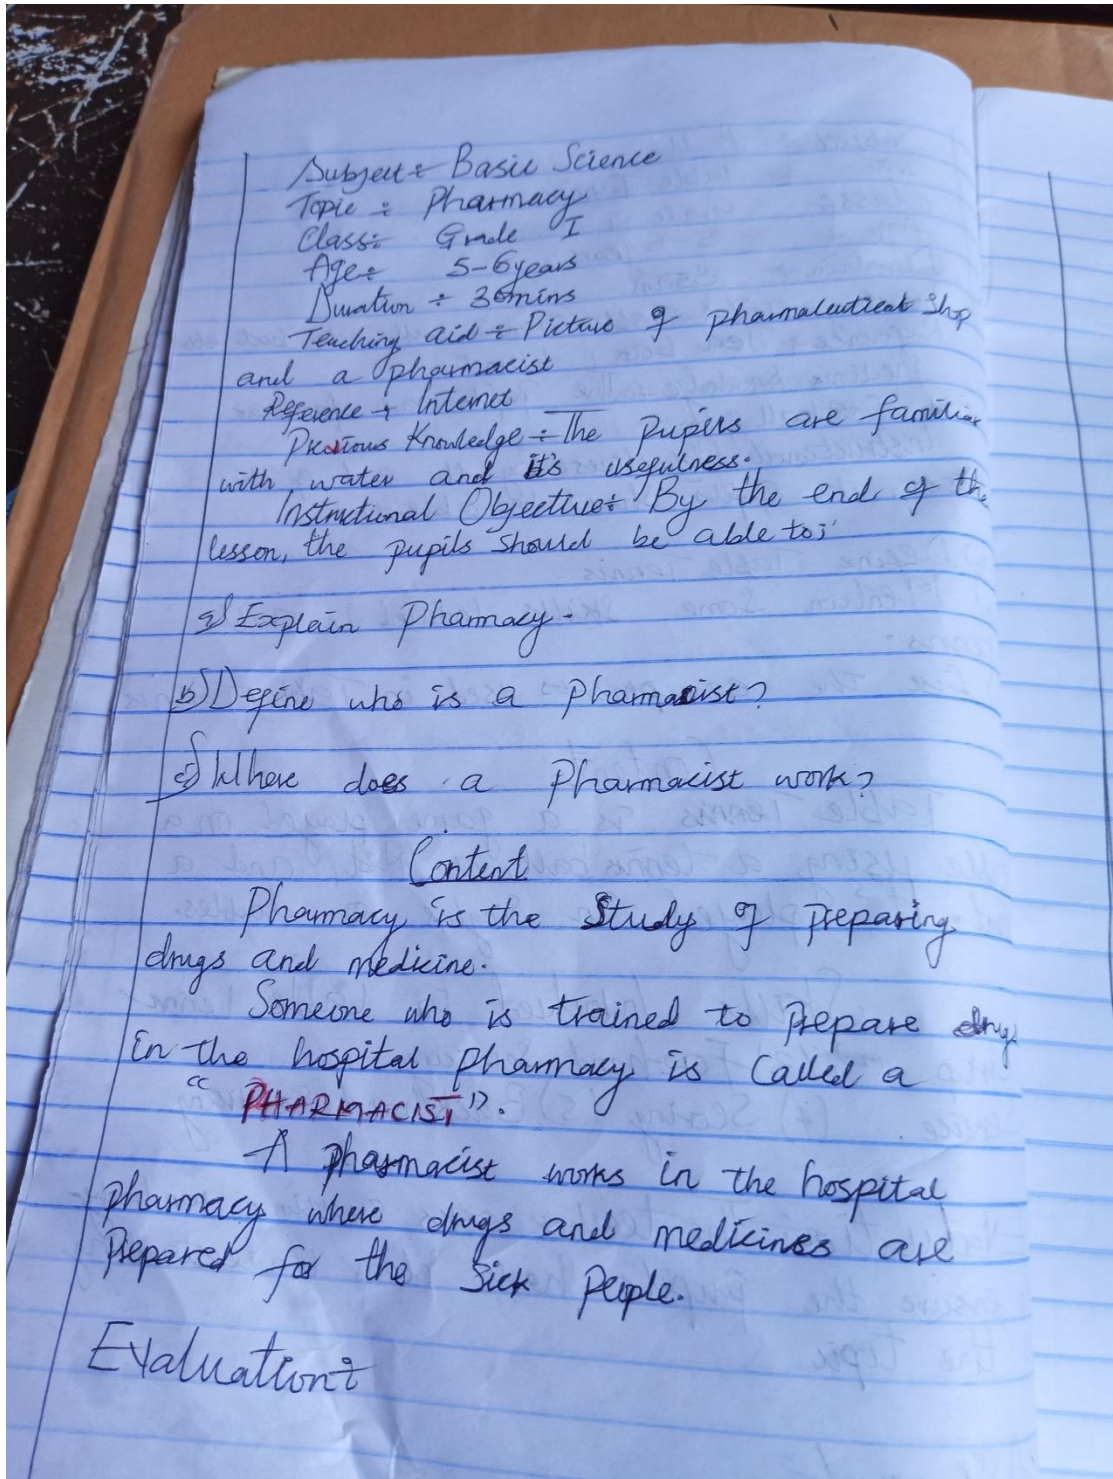 Subject ÷ Basic Science
Topic ÷ Pharmacy
Class ÷ Grade I
Age ÷ 5-6years
Duration ÷ 30mins
Teaching aid ÷ Picture of pharmaceutical shop
and a pharmacist
Reference ÷ Internet
Previous Knowledge ÷ The pupils are familiar
with water and it's usefulness.
Instructional Objective ÷ By the end of the
lesson, the pupils should be able to;
a) Explain Pharmacy.
b) Define who is a Pharmacist?
c) Where does a Pharmacist work?
Content
Pharmacy is the Study of preparing
drugs and medicine.
Someone who is trained to prepare drug
in the hospital pharmacy is Called a
"PHARMACIST".
A pharmacist works in the hospital
pharmacy where drugs and medicines are
prepared for the Sick people.
Evaluation ÷